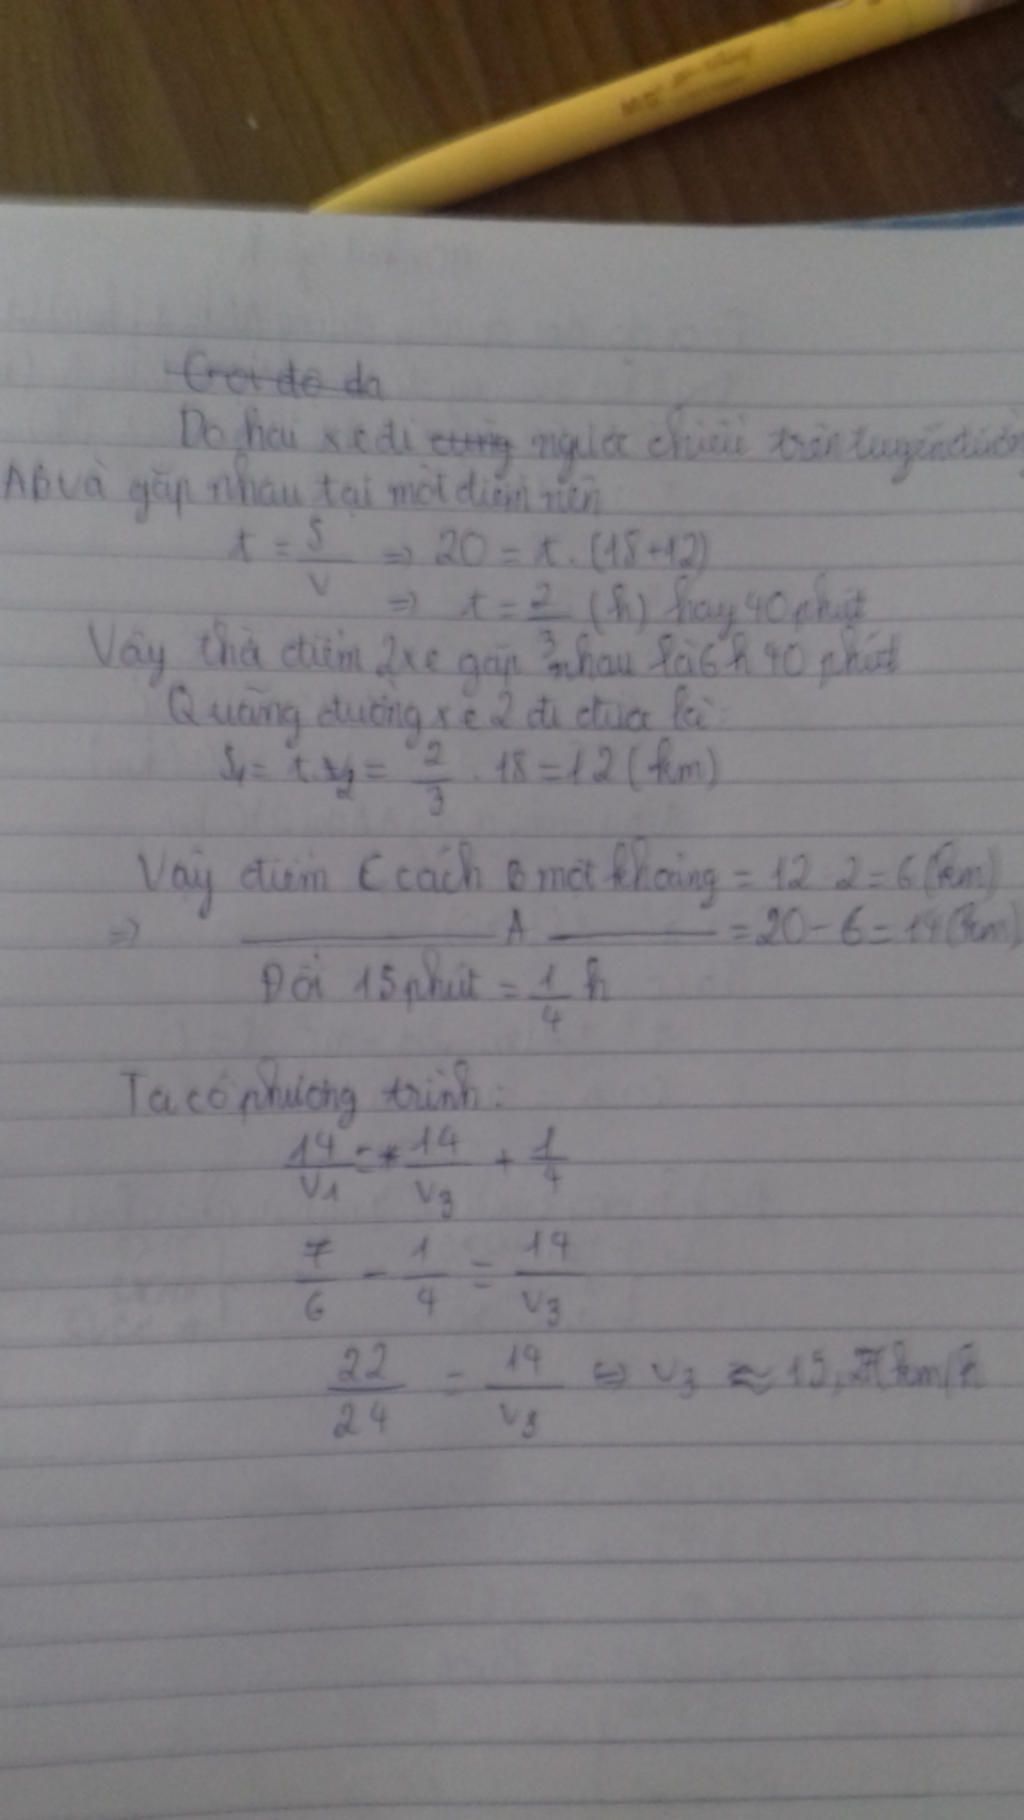 Do hai xe đi cùng ngược chiều trên tuyến đường
AB và gặp nhau tại một điểm nên:
t = S/v => 20 = t . (18+12)
=> t = 2/3 (h) hay 40 phút
Vậy thờ điểm 2 xe gặp nhau là 6 h 40 phút
Quãng đường xe 2 đi được là:
S1 = t.v2 = 2/3 . 18 = 12 (km)
Vậy điểm C cách B một khoảng = 12 2 = 6 (km)
=> ——— A ——— = 20 - 6 = 14 (km)
Đổi 15 phút = 1/4 h
Ta có phương trình:
14/v1 = 14/v3 + 1/4
7/6 - 1/4 = 14/v3
22/24 = 14/v3 ⇔ v3 ≈ 15,27 km/h